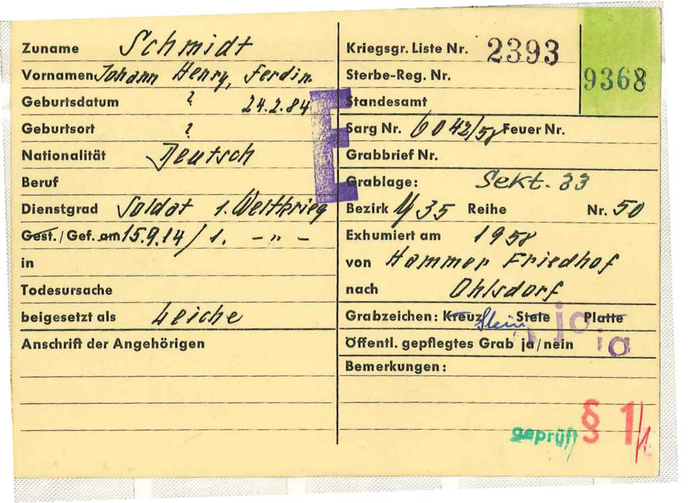 Zuname Schmidt
Vornamen Johann Henry, Ferdin.
Geburtsdatum ? 24.2.84
Geburtsort ?
Nationalität Deutsch
Beruf
Dienstgrad Soldat 1. Weltkrieg
Gest. / Gef. am 15.9.14 / 1. - " -
in
Todesursache
beigesetzt als Leiche
Anschrift der Angehörigen
E
Kriegsgr. Liste Nr. 2393
9368
Sterbe-Reg. Nr.
Standesamt
Sarg Nr. 6042/58 Feuer Nr.
Grabbrief Nr.
Grablage: Sekt. 33
Bezirk 35 Reihe Nr. 50
Exhumiert am 1958
von Hammer Friedhof
nach Ohlsdorf
Grabzeichen: Kreuz Stein Stele Platte ja
Öffentl. gepflegtes Grab ja/nein ja
Bemerkungen:
geprüft § 1/1